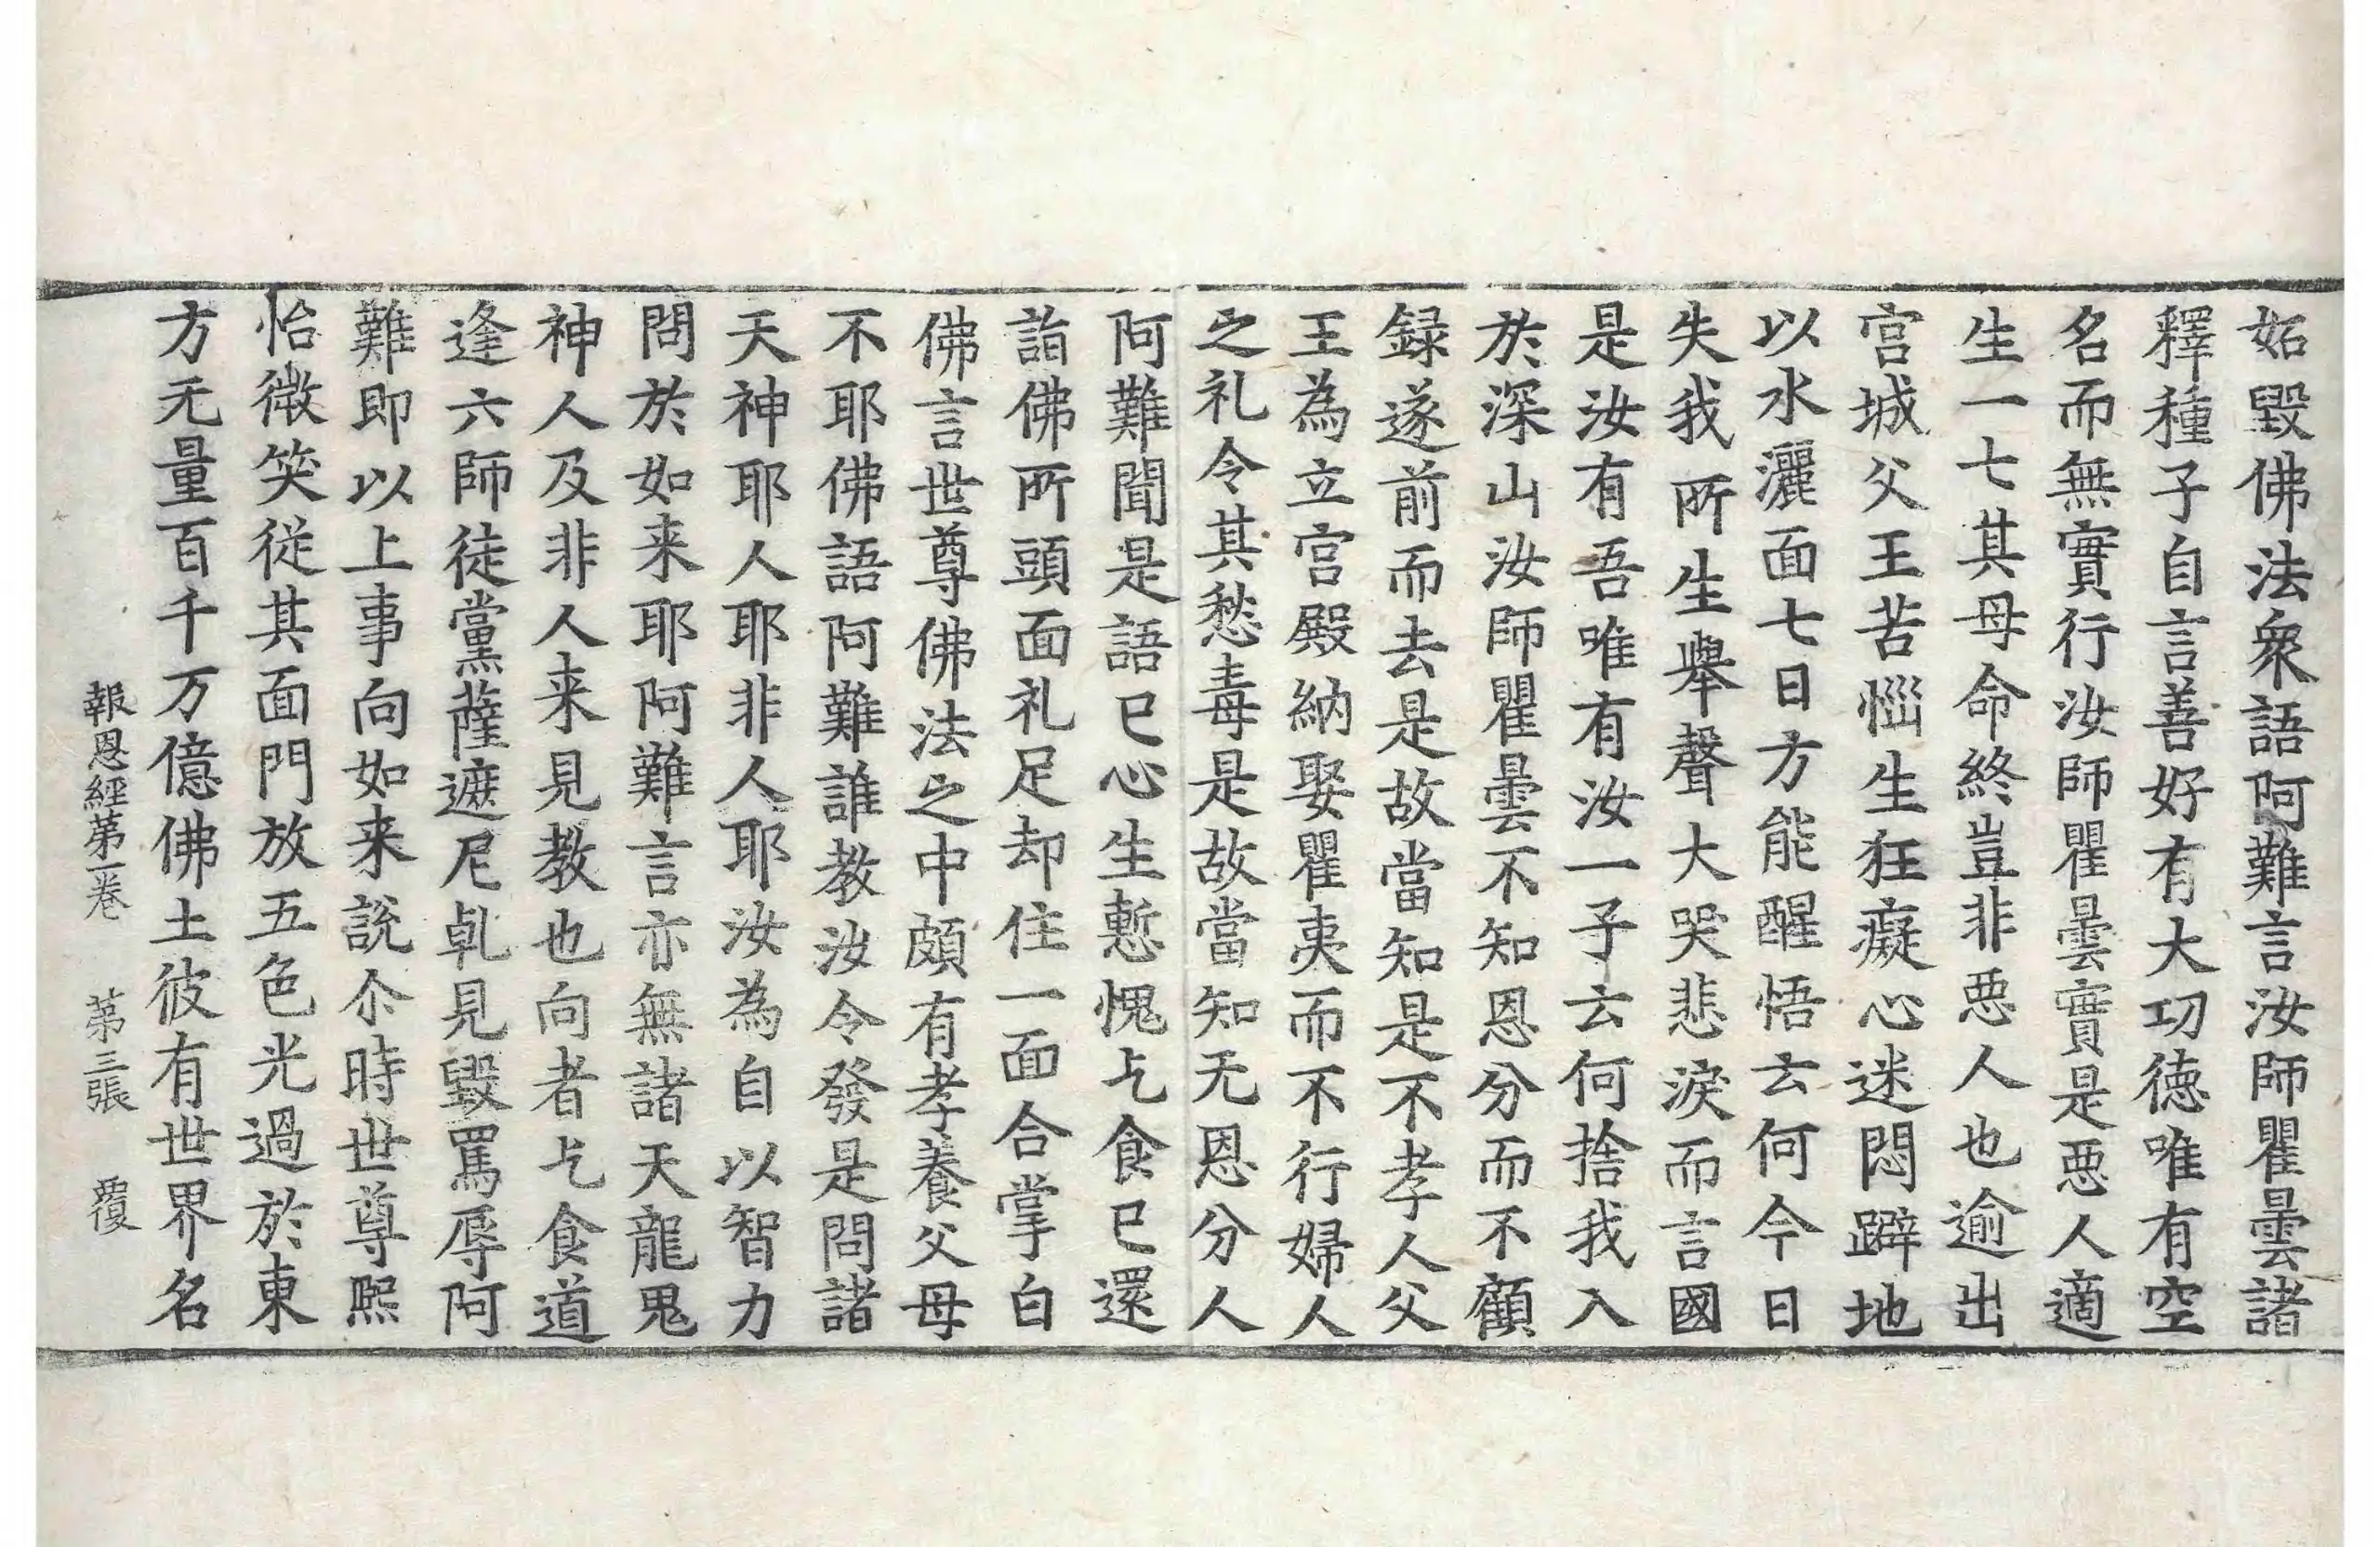 妬毀佛法衆語阿難言汝師瞿曇諸
釋種子自言善好有大功徳唯有空
名而無實行汝師瞿曇實是悪人適
生一七其母命終豈非悪人也逾出
宫城父王苦惱生狂癡心迷悶躃地
以水灑面七日方能醒悟云何今日
失我所生舉聲大哭悲淚而言國
是汝有吾唯有汝一子云何捨我入
於深山汝師瞿曇不知恩分而不顧
録遂前而去是故當知是不孝人父
王為立宫殿納娶瞿夷而不行婦人
之礼令其愁毒是故當知无恩分人
阿難聞是語已心生慙愧乞食已還
詣佛所頭面礼足却住一面合掌白
佛言世尊佛法之中頗有孝養父母
不耶佛語阿難誰教汝令發是問諸
天神耶人耶非人耶汝為自以智力
問於如来耶阿難言亦無諸天龍鬼
神人及非人来見教也向者乞食道
逢六師徒黨薩遮尼乹見毀罵辱阿
難即以上事向如来說尒時世尊熙
怡微笑従其面門放五色光過於東
方无量百千万億佛土彼有世界名
報恩經第一卷 第三張 覆